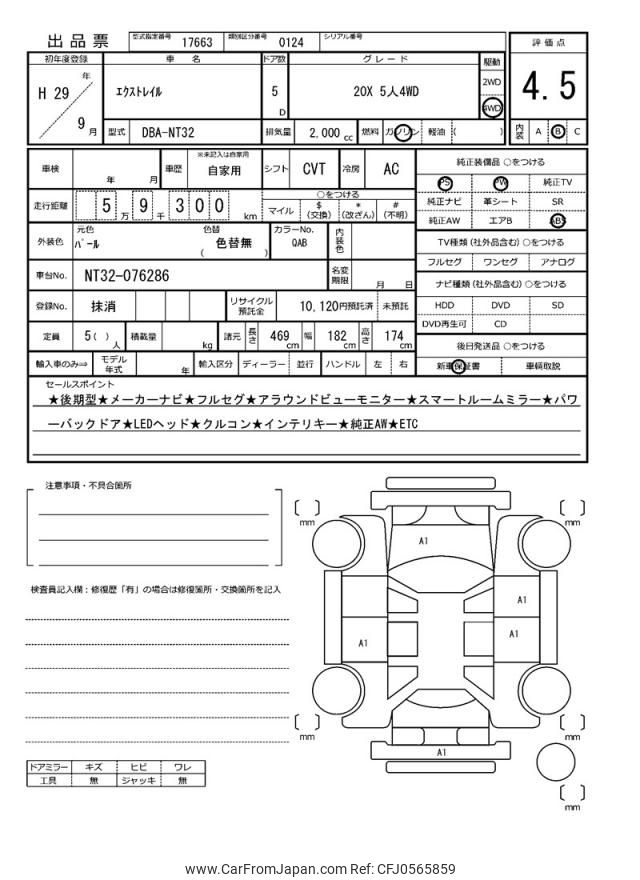 出品票 型式指定番号 17663 類別区分番号 0124 シリアル番号
評価点
4.5
初年度登録 車名 ドア数 グレード 駆動
H 29 年 9 月
エクストレイル 5 D 20X 5人4WD 2WD 4WD
型式 DBA-NT32 排気量 2,000 cc 燃料 ガソリン 軽油 ( )
内装 A B C
車検 年 月 車歴 ※未記入は自家用 自家用 シフト CVT 冷房 AC
走行距離 5 万 9 千 3 0 0 km
○をつける
マイル $ (交換) * (改ざん) # (不明)
外装色 元色 パール 色替 ( 色替無 ) カラーNo. QAB 内装色
車台No. NT32-076286 名変期限 月 日
登録No. 抹消 リサイクル預託金 10,120円預託済 未預託
定員 5( ) 人 積載量 kg 諸元 長さ 469 cm 幅 182 cm 高さ 174 cm
輸入車のみ⇒ モデル年式 年 輸入区分 ディーラー 並行 ハンドル 左 右
純正装備品 ○をつける
PS PW 純正TV
純正ナビ 革シート SR
純正AW エアB ABS
TV種類 (社外品含む) ○をつける
フルセグ ワンセグ アナログ
ナビ種類 (社外品含む) ○をつける
HDD DVD SD
DVD再生可 CD
後日発送品 ○をつける
新車保証書 車輌取説
セールスポイント
★後期型★メーカーナビ★フルセグ★アラウンドビューモニター★スマートルームミラー★パワ
ーバックドア★LEDヘッド★クルコン★インテリキー★純正AW★ETC
注意事項・不具合箇所
検査員記入欄:修復歴「有」の場合は修復箇所・交換箇所を記入
ドアミラー キズ ヒビ ワレ
工具 無 ジャッキ 無
mm
mm
A1
A1
A1
A1
mm
mm
A1
mm
www.CarFromJapan.com Ref: CFJ0565859